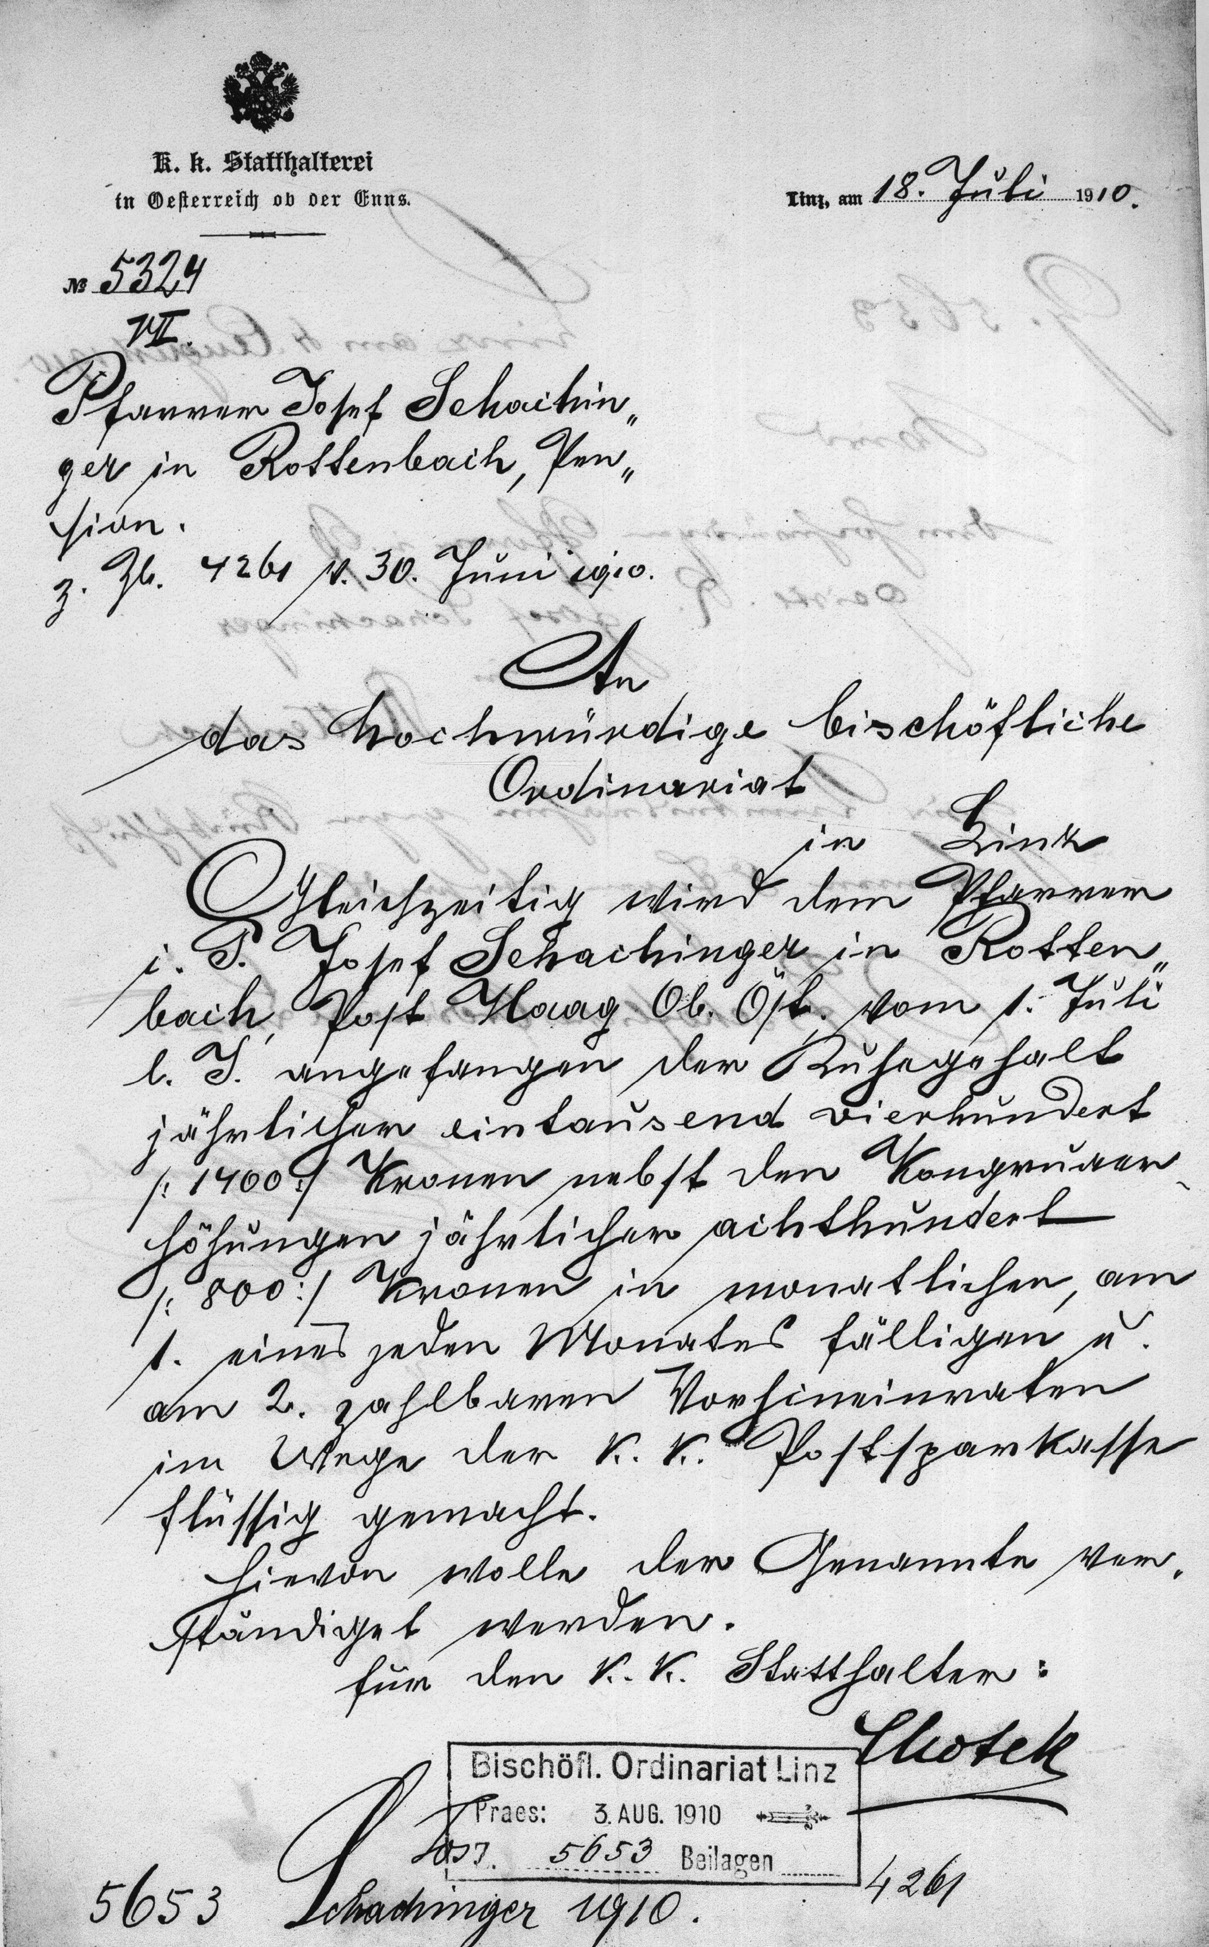 K. k. Statthalterei
in Oesterreich ob der Enns.
Linz, am 18. Juli 1910.
№ 5324
VII.
Pfarrer Josef Schachin„
ger in Rottenbach, Pen„
sion.
z. Zl. 4261 v. 30. Juni 1910.
An
das hochwürdige bischöfliche
Ordinariat
in Linz
Gleichzeitig wird dem Pfarrer
i. P. Josef Schachinger in Rotten„
bach, Post Haag Ob. Öst. vom 1. Juli
l. J. angefangen der Ruhegehalt
jährlicher eintausend vierhundert
/: 1400 :/ Kronen nebst den Kongruaer-
höhungen jährlicher achthundert
/: 800 :/ Kronen in monatlichen, am
1. eines jeden Monates fälligen u.
am 2. zahlbaren Vorhineinraten
im Wege der k. k. Postsparkasse
flüssig gemacht.
Hievon wolle der Genannte ver-
ständiget werden.
für den k. k. Statthalter:
Chotek
Bischöfl. Ordinariat Linz
Praes: 3. AUG. 1910
5653 Beilagen
4261
5653 Schachinger 1910.